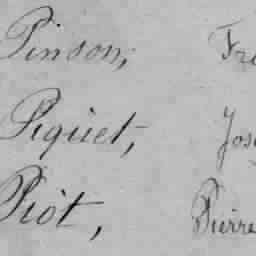 Pinson, Fr
Piquet, Jos
Piòt, Pierre